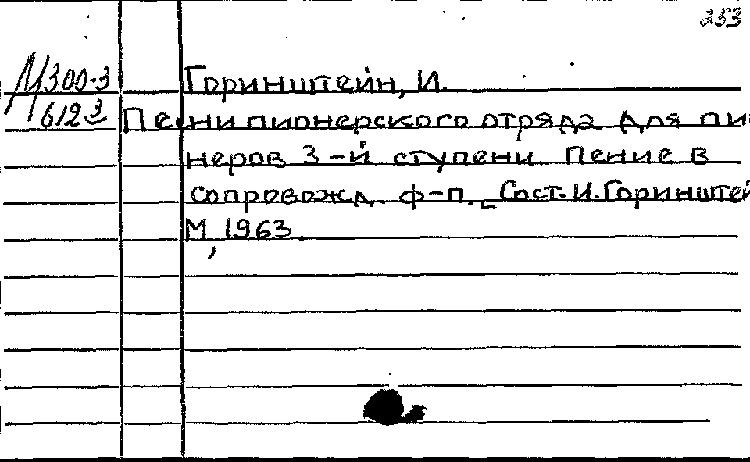 353
М300-3 Горинштейн, И.
612з Песни пионерского отряда для пи
неров 3-й ступени. Пение в
сопровожд. ф-п. Сост. И. Горинштей
М, 1963